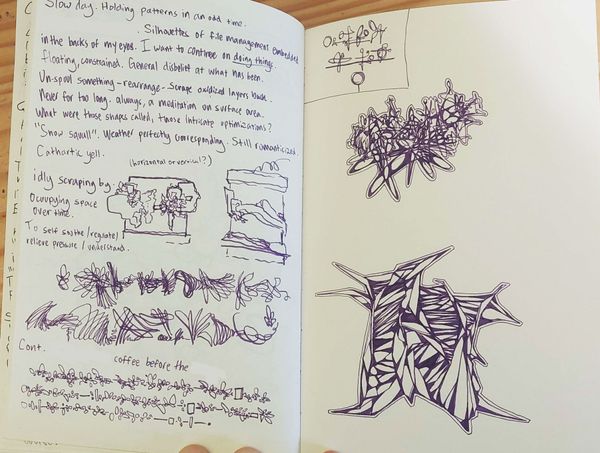 Slow day. Holding patterns in an odd time.
Silhouettes of file management embedded
in the backs of my eyes. I want to continue on doing things.
floating, constrained. General disbelief at what has been.
Un-spool something - rearrange - scrape oxidized layers back.
Never for too long. always, a meditation on surface area.
What were those shapes called, those intricate optimizations?
"Snow squall". Weather perfectly corresponding. Still romanticized.
Cathartic yell.
(horizontal or vertical?)
idly scraping by.
Occupying space
over time.
To self soothe / regulate /
relieve pressure / understand.
Cont.
coffee before the